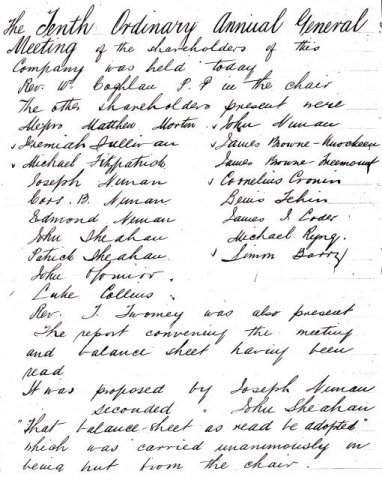 The Tenth Ordinary Annual General
Meeting of the shareholders of this
Company was held today
Rev. W. Coghlan P.P in the chair
The other shareholders present were
Messrs Matthew Morton John Nunan
Jeremiah Sullivan James Browne-Knockeen
Michael Fitzpatrick James Browne-
Joseph Nunan Cornelius Cronin
Cors. D. Nunan Denis
Edmond Nunan James J. Corder
John Sheahan Michael Ryng.
Patrick Sheahan Simon Barry
John O'Connor.
Luke Collins.
Rev. T. Twomey was also present
The report convening the meeting
and balance sheet having been
read
It was proposed by Joseph Nunan
Seconded " John Sheahan
"That balance-sheet as read be adopted"
which was carried unanimously on
being put from the chair.